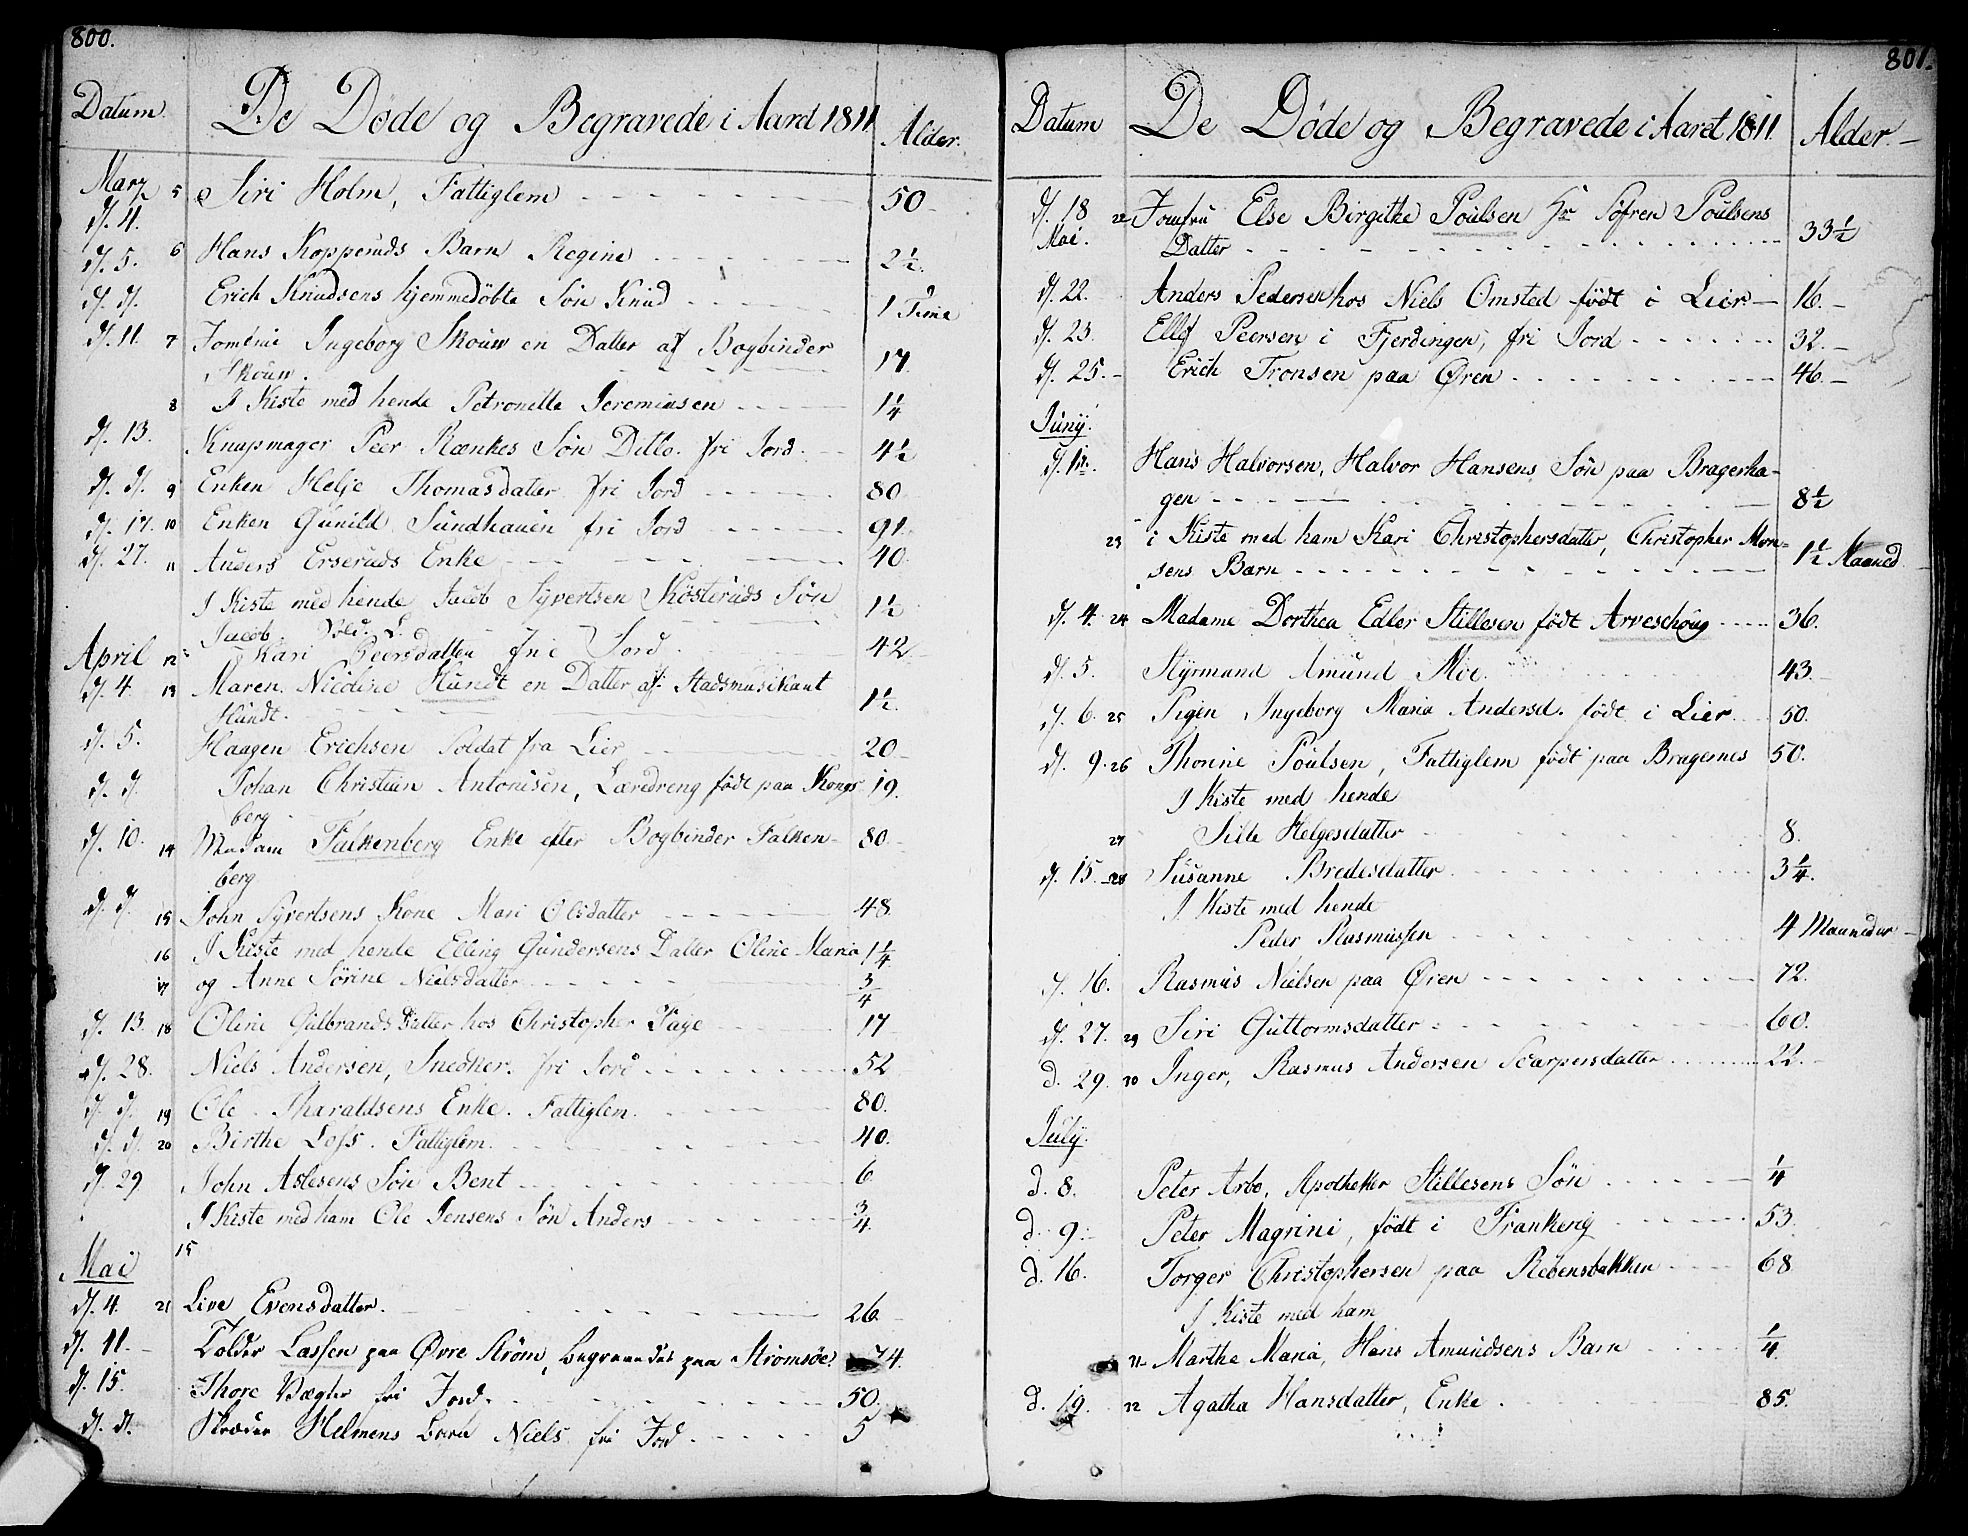 800.
Datum. De Döde og Begravede i Aaret 1811 Alder.
Marz 5 Siri Holm, Fattiglem 50
d. 4.
d. 5. 6 Hans Kopperuds Barn Regine 2½.
d. d. Erich Knudsens hjemmedöbte Sön Knud 1 Time
d. 11. 7 Jomfrue Ingeborg Skouw en Datter af Bogbinder
Skouw. 17
8 I Kiste med hende Petronelle Jeremiasen 1¼
d. 13. Knapmager Peer Rænkes Sön Ditlo. fri Jord. 4½
d. d. 9 Enken Helje Thomasdatter fri Jord 80
d. 17. 10 Enken Gunild Sundhauen fri Jord 91.
d. 27. 11 Anders Erseruds Enke 40.
I Kiste med hende Jacob Syvertsen Kösteruds Sön
Jacob. 1½
April 12 Kari Peersdatter frie Jord. 42
d. 4 13 Maren Nicoline Hundt en Datter af Stadsmusikant
Hundt. 1½.
d. 5. Haagen Erichsen Soldat fra Lier 20
d. d. Johan Christian Antonisen, Læredreng födt paa Kongs 19.
berg
d. 10. 14 Madam Falkenberg Enke efter Bogbinder Falken- 80.
berg
d. d. 15 John Syvertsens Kone Mari Olsdatter 48.
16 I Kiste med hende Elling Gundersens Datter Oline Maria 1¼
17 og Anne Sörine Nielsdatter ¾
d. 13. 18 Oline Gulbrands Datter hos Christopher Faye 17
d. 28. Niels Andersen, Snedker. fri Jord 52
d. d. 19 Ole Tharaldsens Enke. Fattiglem. 80.
d. d. 20 Birthe Loss. Fattiglem. 40.
d. 29 John Aslesens Sön Bent 6
I Kiste med ham Ole Jensens Sön Anders ¾
Mai 15
d. 4. 21 Live Evensdatter. 26
d. 11. Tolder Lassen paa Övre Ström, begravedes paa Strömsöe 74.
d. 15. Thore Vægter fri Jord. 50.
d. d. Skræder Helmens Barn Niels fri Jord 5
801.
Datum De Döde og Begravede i Aaret 1811. Alder.
d. 18 22 Jomfru Else Birgithe Poulsen Hr Söfren Poulsens
Mai. Datter 33½
d. 22. Anders Pedersen hos Niels Omsted födt i Lier 16.
d. 23. Ellef Peersen i Fjerdingen, fri Jord 32.
d. 25. Erich Tronsen paa Øren 46.
Juny.
d. 1ste. Hans Halvorsen, Halvor Hansens Sön paa Bragerha-
gen 8½
23 i Kiste med ham Kari Christophersdatter, Christopher Mon-
sens Barn 1½ Maaned
d. 4. 24 Madame Dorthea Edler Stillesen födt Arveschoug 36.
d. 5. Styrmand Amund Moe. 43.
d. 6. 25 Pigen Ingeborg Maria Andersd. födt i Lier 50.
d. 9. 26 Thorine Poulsen, Fattiglem födt paa Bragernes 50.
I Kiste med hende
27 Silde Helgesdatter 8.
d. 15. 28 Susanne Bredesdatter 3¼.
I Kiste med hende
Peder Rasmussen 4 Maaneder
d. 16. Rasmus Nielsen paa Øren 72.
d. 27. 29 Siri Guttormsdatter 60.
d. 29. 30 Inger, Rasmus Andersen Scarpersdatter 22.
July.
d. 8. Peter Arbo, Apotheker Stillesens Sön ¼
d. 9. Peter Magrini, födt i Frankerig 53.
d. 16. Torger Christophersen paa Rebensbakken 68
I Kiste med ham
31 Marthe Maria, Hans Amundsens Barn ¼.
d. 19. 32 Agatha Hansdatter, Enke. 85.